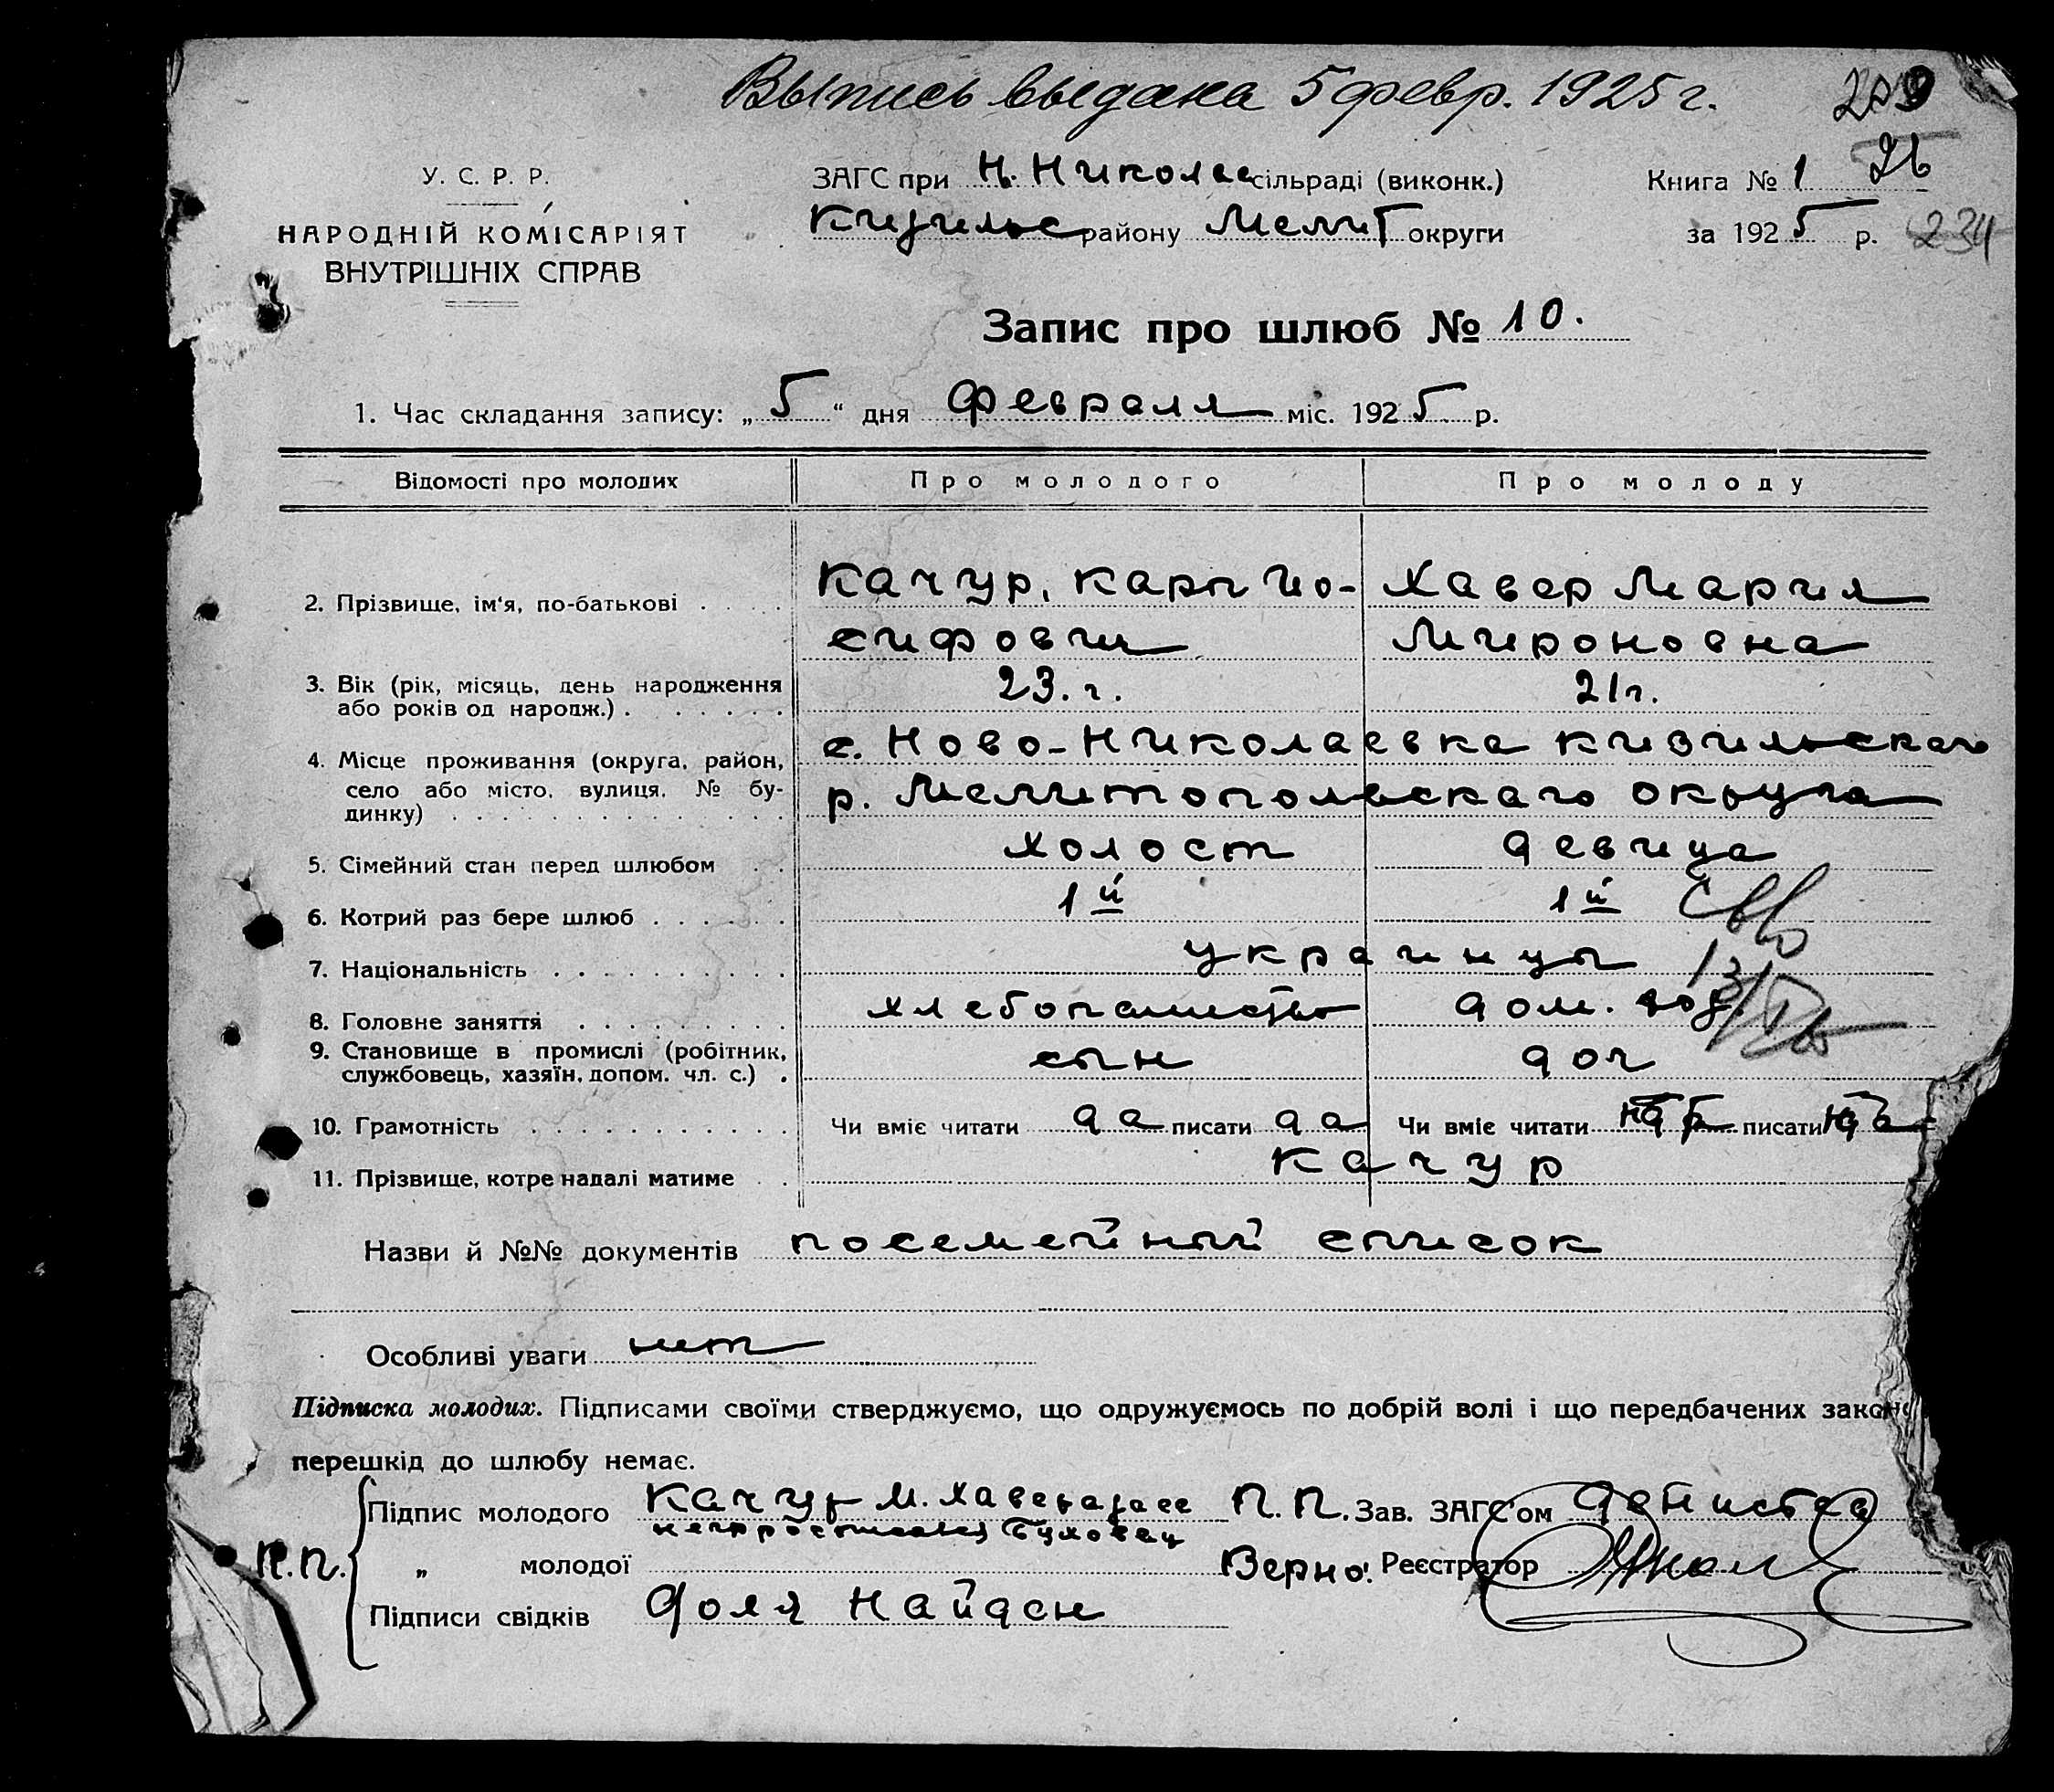 Выпись выдана 5 февр. 1925 г.
У. С. Р. Р.
НАРОДНІЙ КОМІСАРІЯТ
ВНУТРІШНІХ СПРАВ
ЗАГС при Н. Николае сільраді (виконк.)
Кизильс району Мелит округи
Книга № 1 26
за 1925 р. 234
Запис про шлюб № 10.
1. Час складання запису: „ 5 “ дня Февраля міс. 1925 р.
Відомості про молодих Про молодого Про молоду
2. Прізвище, ім'я, по-батькові Качур, Карп Ио- Хавер Мария
сифович Мироновна
3. Вік (рік, місяць, день народження 23. г. 21 г.
або років од народж.)
4. Місце проживання (округа, район, с. Ново-Николаевка Кизильскаго
село або місто, вулиця, № бу- р. Мелитопольскаго округа
динку)
5. Сімейний стан перед шлюбом холост девица
6. Котрий раз бере шлюб 1й 1й
7. Національність украинцы
8. Головне заняття хлебопашество дом.
9. Становище в промислі (робітник, сын доч
службовець, хазяїн, допом. чл. с.)
10. Грамотність Чи вміє читати да писати да Чи вміє читати писати
11. Прізвище, котре надалі матиме Качур
Назви й №№ документів посемейный список
Особливі уваги нет
Підписка молодих. Підписами своїми стверджуємо, що одружуємось по добрій волі і що передбачених закон
перешкід до шлюбу немає.
Підпис молодого Качур М. П.П. Зав. ЗАГС'ом
П.П. „ молодої Верно: Реєстратор
Підписи свідків Доля Найден